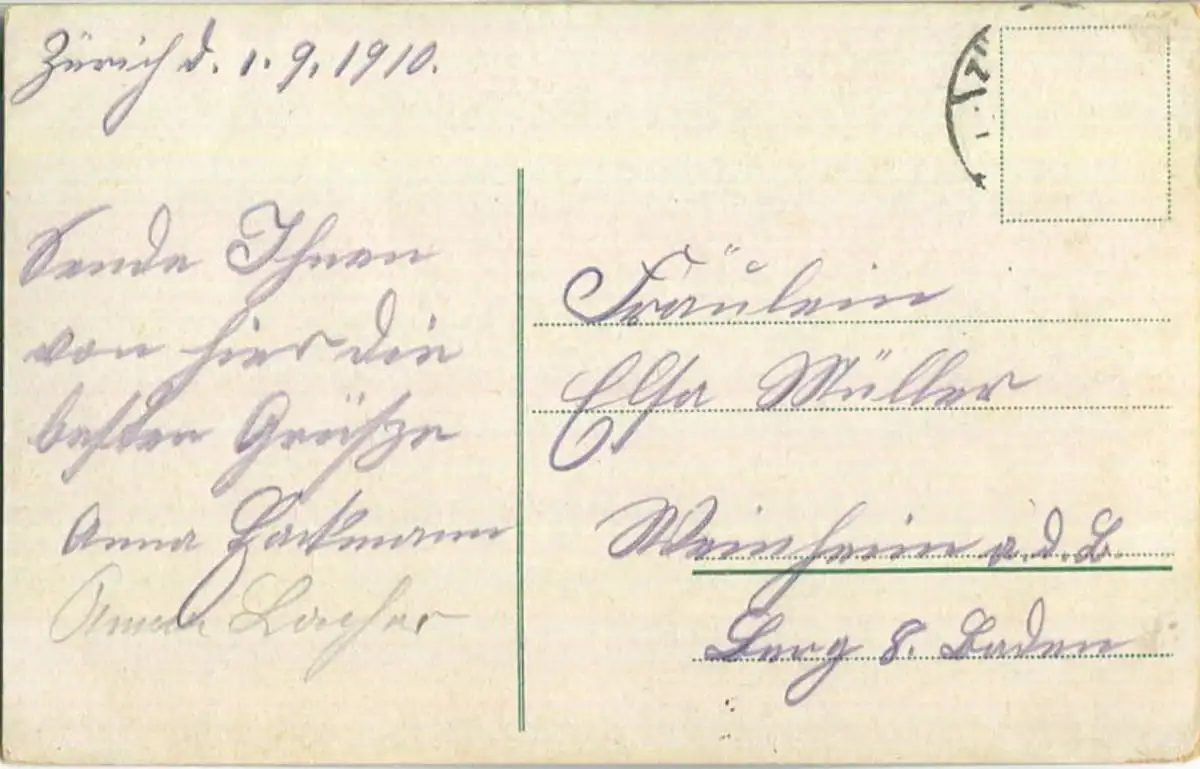 Zürich d. 1. 9. 1910.
Sende Ihnen
von hier die
besten Grüße
Anna Hackmann
Anna Lacher
Fräulein
Elsa Müller
Weinheim a. d. B.
Berg 8. Baden